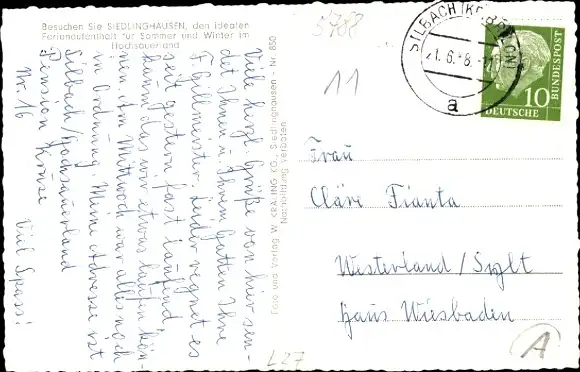 Besuchen Sie SIEDLINGHAUSEN, den idealen
Ferienaufenthalt für Sommer und Winter im
Hochsauerland
Viele herzl. Grüße von hier sen-
det Ihnen u. Ihrem Gatten Ihre
F. Gillmeister. Leider regnet es
seit gestern fast laufend
kaum das wir etwas laufen kön-
nen. Am Mittwoch war alles noch
in Ordnung. Meine Adresse ist
Silbach/Hochsauerland
Pension Kruse
Nr. 16
Viel Spass!
Foto und Verlag W. KRÄLING KG., Siedlinghausen - Nr. 850
Nachbildung verboten
5788
11
SILBACH (KR. BRILON)
21.6.58.-
a
10
DEUTSCHE
BUNDESPOST
Frau
Cläre Fianta
Westerland/Sylt
Haus Wiesbaden
L27
A